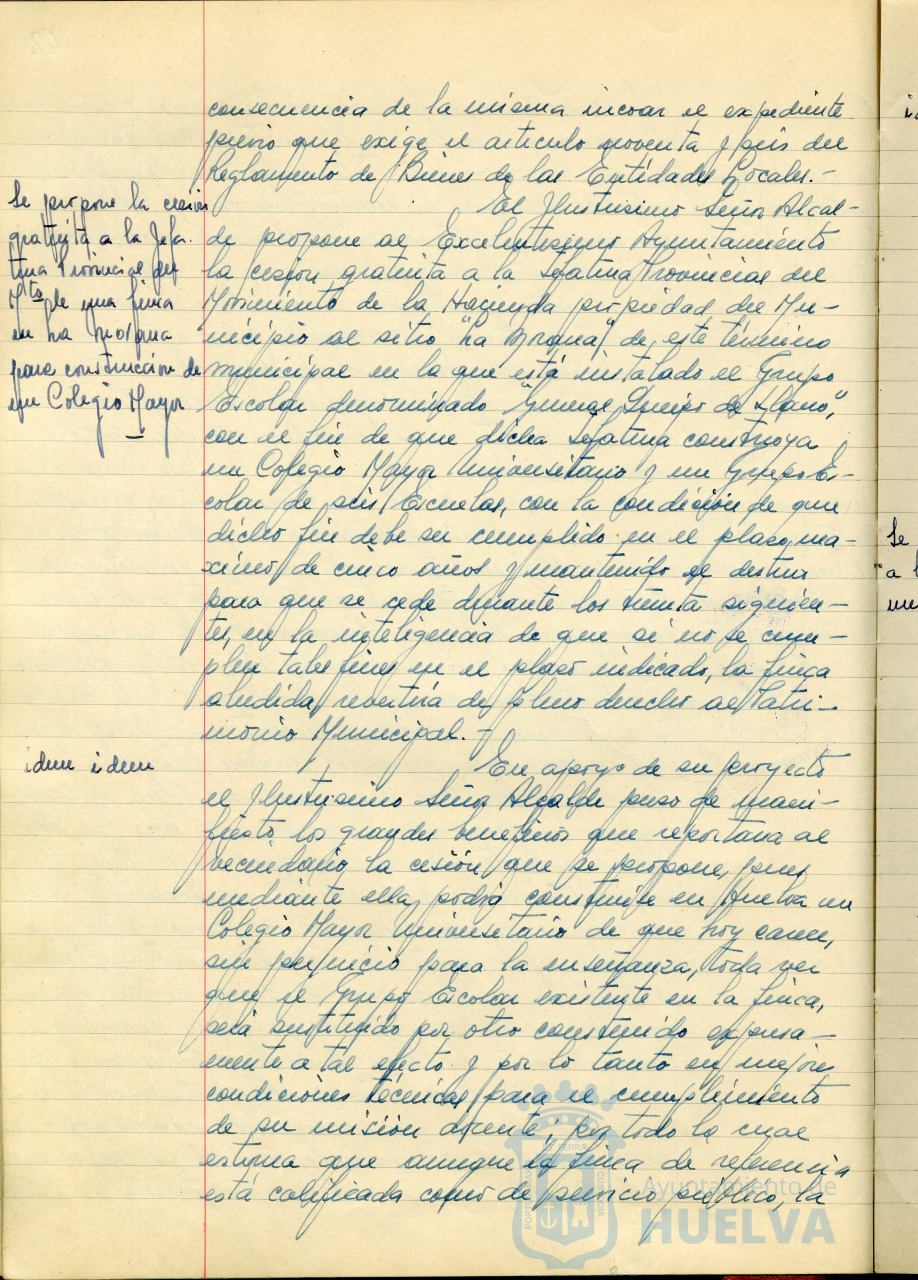 consecuencia de la misma incoar el expediente
previo que exige el artículo noventa y seis del
Reglamento de Bienes de las Entidades Locales.-
Se propone la cesión
gratuita a la Jefa-
tura Provincial del
Mto de una finca
en La Morana
para construcción de
un Colegio Mayor
El Ilustrisimo Señor Alcal-
de propone al Excelentisimo Ayuntamiento
la cesión gratuita a la Jefatura Provincial del
Movimiento de la Hacienda propiedad del Mu-
nicipio al sitio "La Morana" de este término
municipal en la que está instalado el Grupo
Escolar denominado "General Queipo de Llano",
con el fin de que dicha Jefatura construya
un Colegio Mayor Universitario y un Grupo Es-
colar de seis Escuelas, con la condición de que
dicho fin debe ser cumplido en el plazo má-
ximo de cinco años y mantenido el destino
para que se cede durante los treinta siguien-
tes, en la inteligencia de que si no se cum-
plen tales fines en el plazo indicado, la finca
aludida, revertirá de pleno derecho al Patri-
monio Municipal.-
idem idem
En apoyo de su proyecto
el Ilustrisimo Señor Alcalde puso de mani-
fiesto los grandes beneficios que reportaria al
vecindario, la cesión que se propone, pues
mediante ella, podrá construirse en Huelva un
Colegio Mayor Universitario de que hoy carece,
sin perjuicio para la enseñanza, toda vez
que el Grupo Escolar existente en la finca,
será sustituido por otro construido expresa-
mente a tal efecto y por lo tanto en mejores
condiciones técnicas, para el cumplimiento
de su misión docente; por todo lo cual
estima que aunque la finca de referencia
está calificada como de servicio público, la
Ayuntamiento de
HUELVA
Se
a l